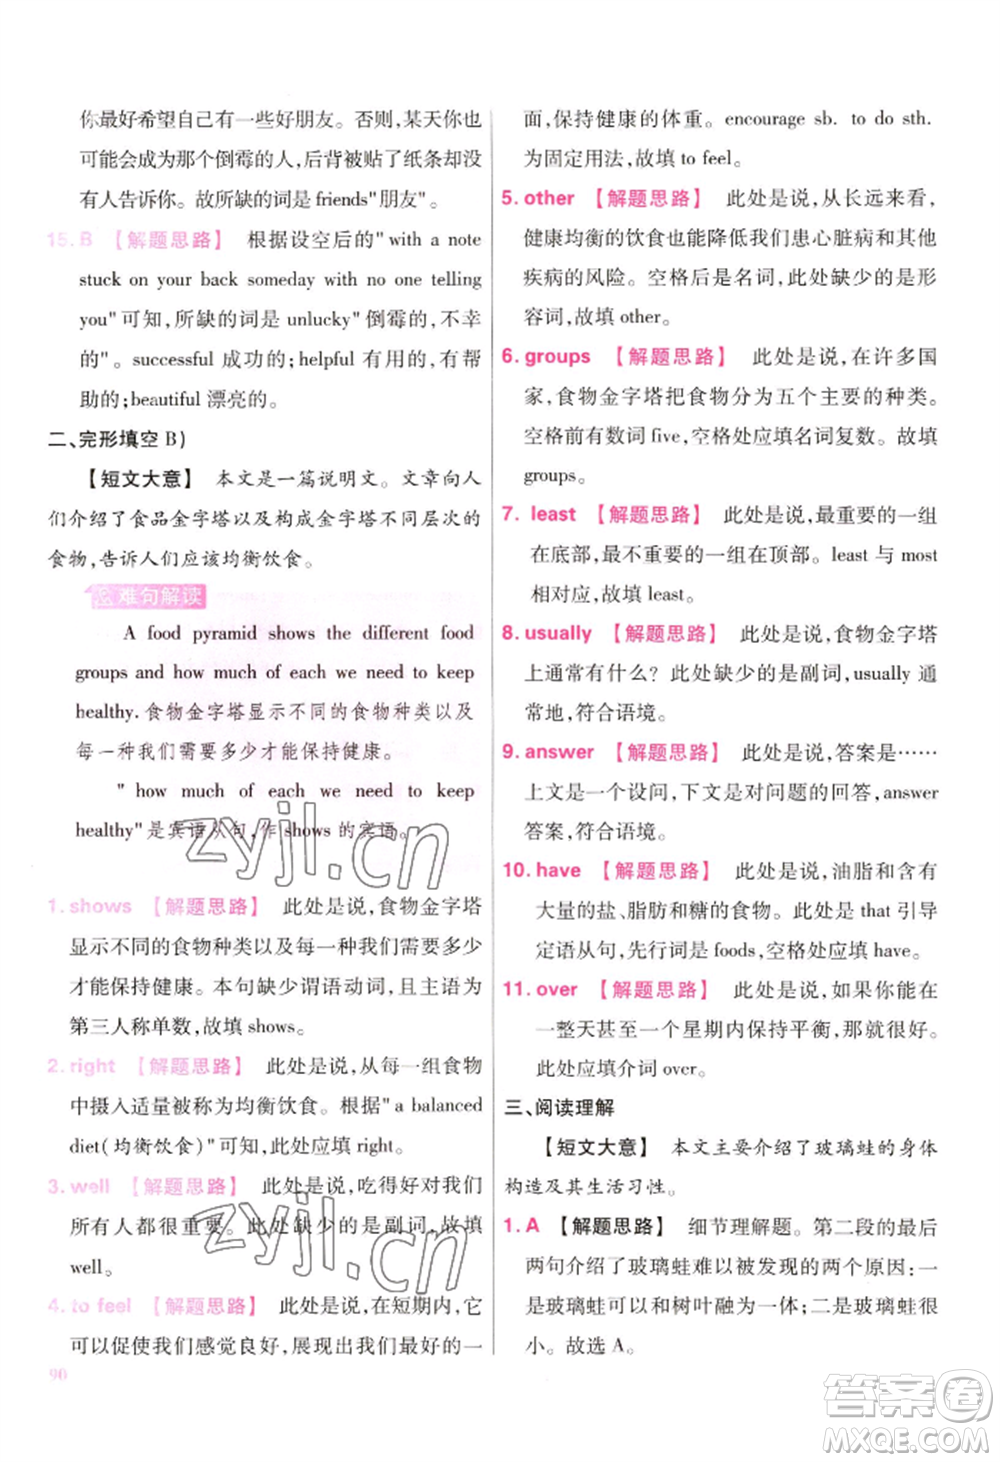 你最好希望自己有一些好朋友。否则,某天你也
可能会成为那个倒霉的人,后背被贴了纸条却没
有人告诉你。故所缺的词是 friends"朋友"。
15. B 【解题思路】 根据设空后的"with a note
stuck on your back someday with no one telling
you"可知,所缺的词是 unlucky"倒霉的,不幸
的"。successful 成功的;helpful 有用的,有帮
助的;beautiful 漂亮的。
二、完形填空 B)
【短文大意】 本文是一篇说明文。文章向人
们介绍了食品金字塔以及构成金字塔不同层次的
食物,告诉人们应该均衡饮食。
难句解读
A food pyramid shows the different food
groups and how much of each we need to keep
healthy. 食物金字塔显示不同的食物种类以及
每一种我们需要多少才能保持健康。
" how much of each we need to keep
healthy"是宾语从句,作 shows 的宾语。
1. shows 【解题思路】 此处是说,食物金字塔
显示不同的食物种类以及每一种我们需要多少
才能保持健康。本句缺少谓语动词,主语为
第三人称单数,故填 shows。
2. right 【解题思路】 此处是说,从每一组食物
中摄入适量被称为均衡饮食。根据"a balanced
diet(均衡饮食)"可知,此处应填 right。
3. well 【解题思路】 此处是说,吃得好对我们
所有人都很重要。此处缺少的是副词,故填
well。
4. to feel 【解题思路】 此处是说,在短期内,它
可以促使我们感觉良好,展现出我们最好的一
90
面,保持健康的体重。encourage sb. to do sth.
为固定用法,故填 to feel。
5. other 【解题思路】 此处是说,从长远来看,
健康均衡的饮食能降低我们患心脏病和其他
疾病的风险。空格后是名词,此处缺少的是形
容词,故填 other。
6. groups 【解题思路】 此处是说,在许多国
家,食物金字塔把食物分为五个主要的种类。
空格前有数词 five,空格处应填名词复数。故填
groups。
7. least 【解题思路】 此处是说,最重要的一组
在底部,最不重要的一组在顶部。least 与 most
相对应,故填 least。
8. usually 【解题思路】 此处是说,食物金字塔
上通常有什么?此处缺少的是副词,usually 通
常地,符合语境。
9. answer 【解题思路】 此处是说,答案是……
上文是一个设问,下文是对问题的回答,answer
答案,符合语境。
10. have 【解题思路】 此处是说,油脂和含有
大量的盐、脂肪和糖的食物。此处是 that 引导
定语从句,先行词是 foods,空格处应填 have。
11. over 【解题思路】 此处是说,如果你能在
一整天甚至一个星期内保持平衡,那就很好。
此处应填介词 over。
三、阅读理解
【短文大意】 本文主要介绍了玻璃蛙的身体
构造及其生活习性。
1. A 【解题思路】 细节理解题。第二段的最后
两句介绍了玻璃蛙难以被发现的两个原因:一
是玻璃蛙可以和树叶融为一体;二是玻璃蛙很
小。故选 A。
zyjl.cn
zyjl.cn
答案圈
MXQE.COM